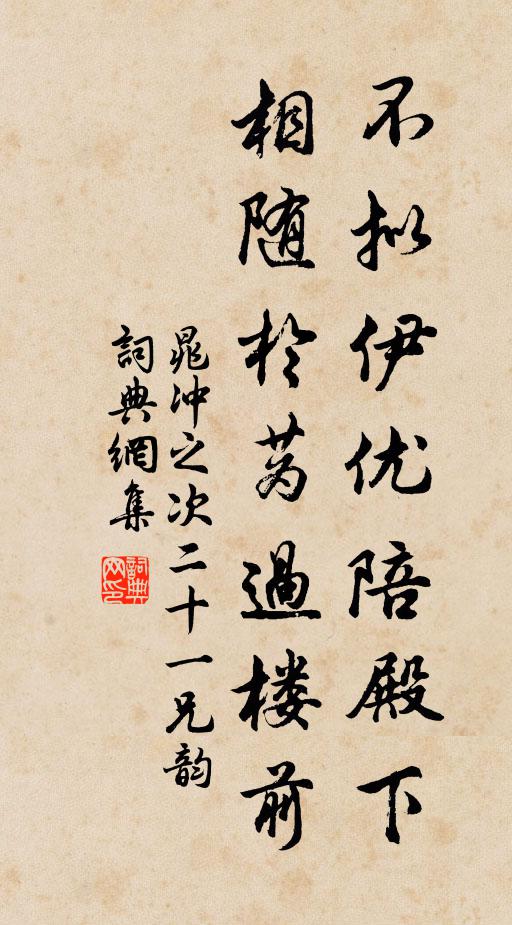 不拟伊优陪殿下
相随於蒍過楼前
晁冲之次二十一兄韵
詞典網集
詞典
网印